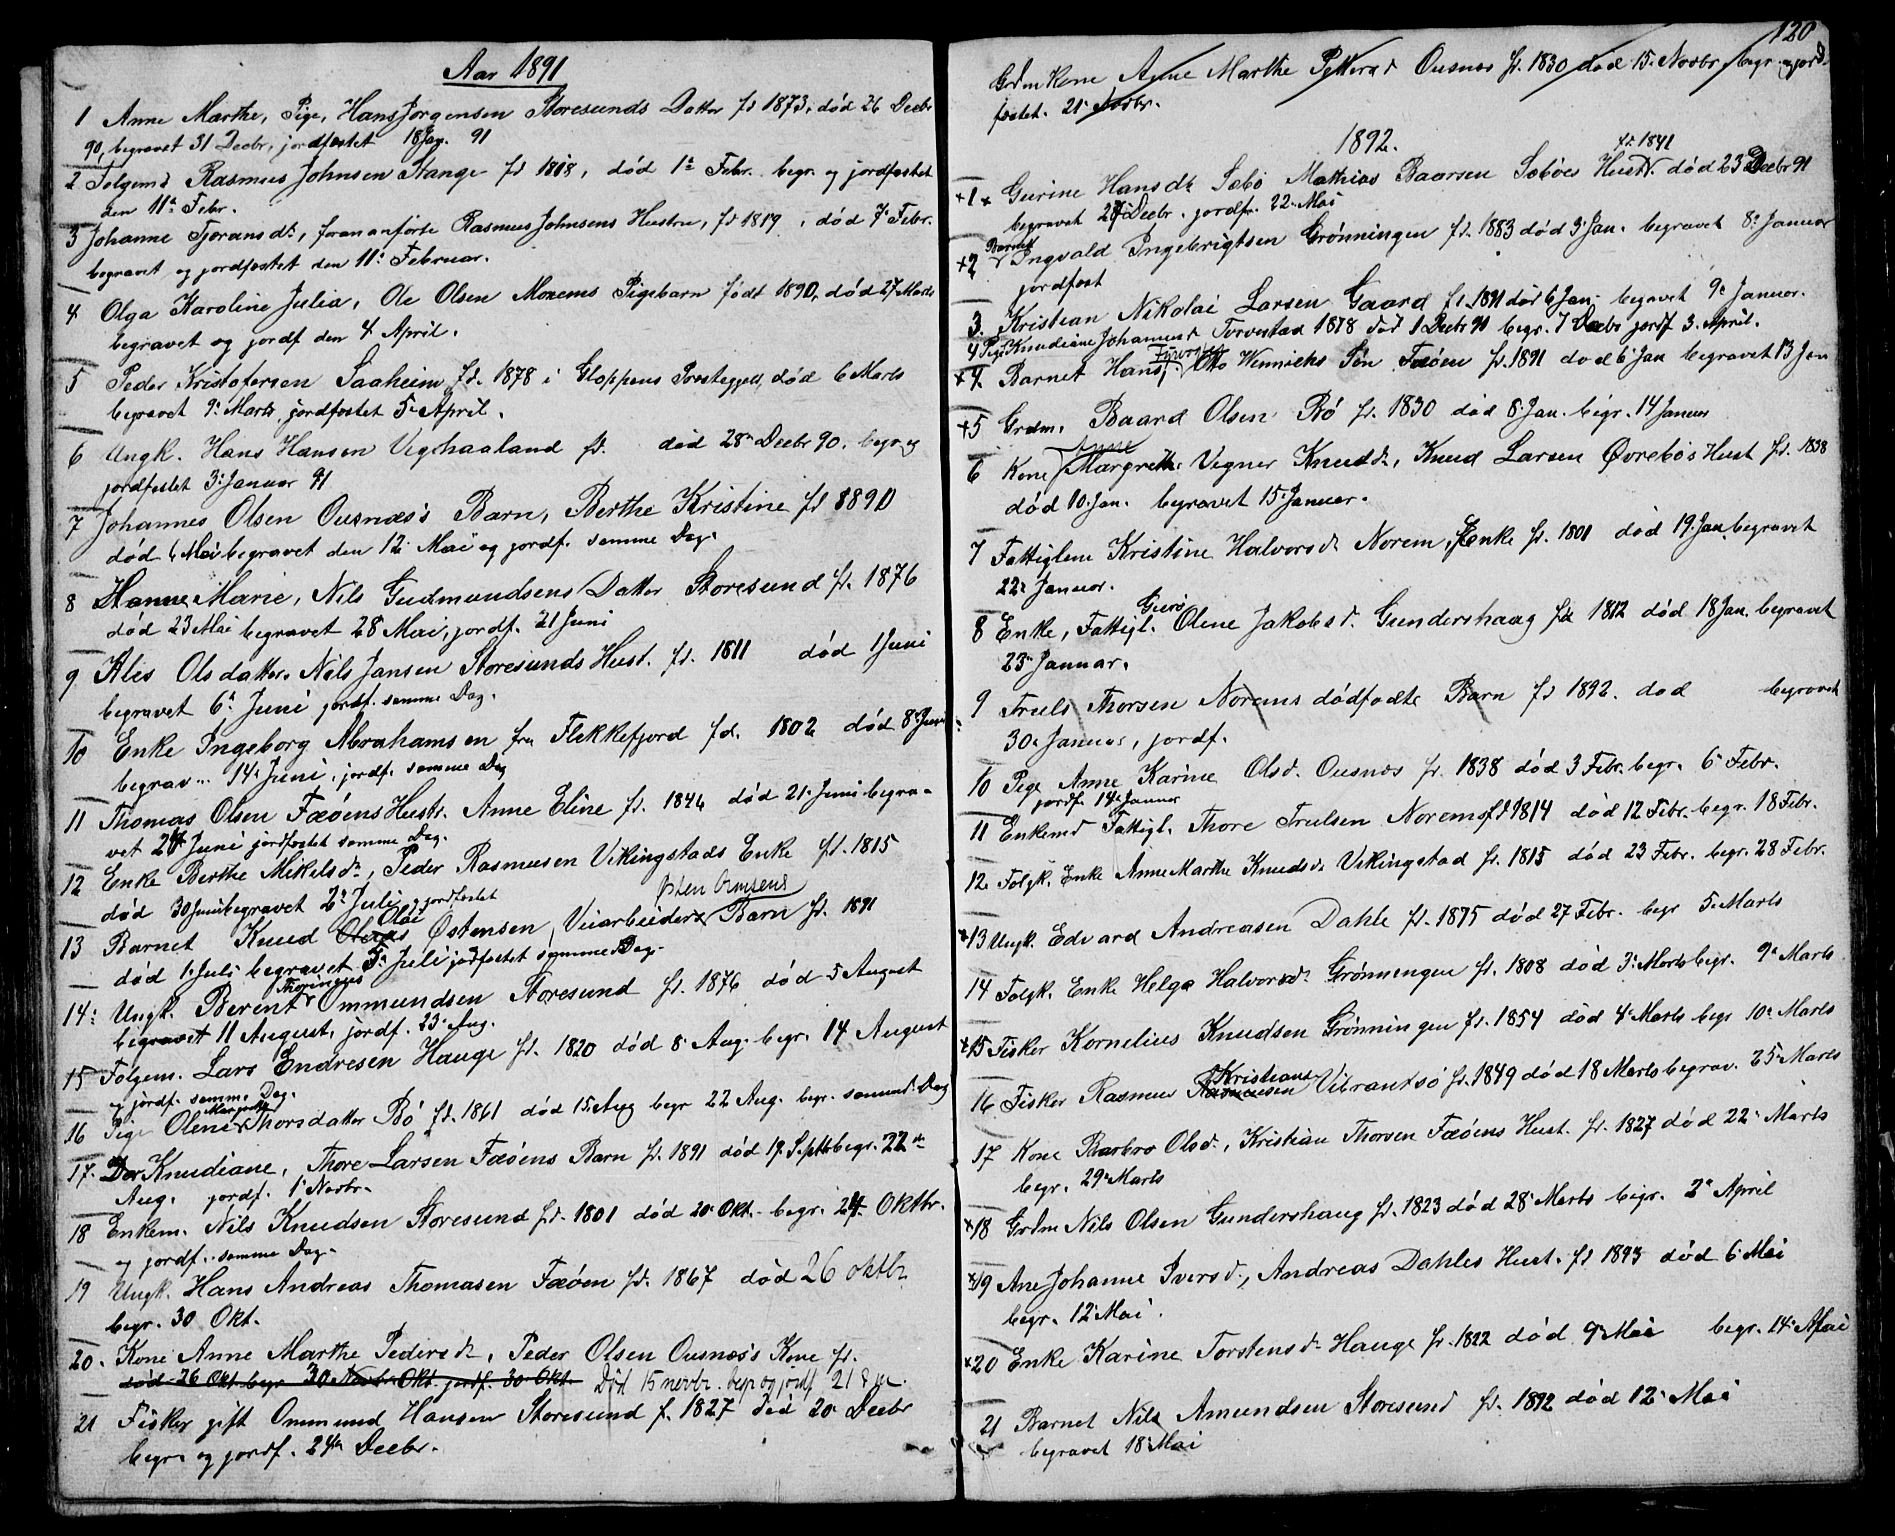 Aar 1891
1 Anne Marthe, Pige, Hans Jørgensen Storesunds Datter fd 1873, død 26 Decbr
90, begravet 31 Decbr, jordfæstet 18 Jan. 91
2 Folgemd Rasmus Johnsen Stange fd 1818, død 1ª Febr. begr. og jordfæstet
den 11ª Febr.
3 Johanne Tjoransdr, foranførte Rasmus Johnsens Hustru, fd 1819, død 7 Febr.
begravet og jordfæstet den 11ª Februar.
4 Olga Karoline Julia, Ole Olsen Moxems Pigebarn født 1890, død 27 Marts
begravet og jordf den 4 April.
5 Peder Kristofersen Saaheim fd. 1878 i Gloppens Prestegjeld, død 6 Marts
begravet 9ª Marts jordfæstet 5 April.
6 Ungk. Hans Hansen Veghaaland fd. død 28ª Decbr 90. begr og
jordfæstet 3ª Januar 91
7 Johannes Olsen Ousnæs's Barn, Berthe Kristine fd 1890
død 6 Mai begravet den 12 Mai og jordf. samme Dag.
8 Hanne Marie, Nils Gudmundsens Datter Storesund fd. 1876
død 23 Mai begravet 28 Mai, jordf. 21 Juni
9 Ales Olsdatter Nils Jansen Storesunds Hust. fd. 1811 død 1 Juni
begravet 6ª Juni jordf. samme Dag.
10 Enke Ingeborg Abrahamsen fra Flekkefjord fd. 1802 død 8 Juni
begrav... 14 Juni, jordf. samme Dag
11 Thomas Olsen Fæøens Hustr. Anne Eline fd. 1846 død 21 Juni begra-
vet 24 Juni jordfæstet samme Dag.
12 Enke Berthe Mikelsdr, Peder Rasmusen Vikingstads Enke fd. 1815
død 30 Juni begravet 2ª Juli og jordfæstet
Østen Omsens
Olai
13 Barnet Knud Østensen, Veiarbeiders Barn fd. 1891
død 1 Juli begravet 5ª Juli jordfæstet samme Dag.
Thoringius
14 Ungk. Berent Ommundsen Storesund fd. 1876 død 5 August
begravet 11 August, jordf. 23 Aug.
15 Folgem. Lars Endresen Hauge fd. 1820 død 8 Aug. begr. 14 August
og jordf. samme Dag.
Margrethe
16 Pige Oline Thorsdatter Bø fd. 1861 død 15 Aug begr 22 Aug. begr. samme Dag
17 Knudiane, Thore Larsen Fæøens Barn fd. 1891 død 19 Septb begr. 22de
Aug. jordf. 1 Novbr.
18 Enkem. Nils Knudsen Storesund fd. 1801 død 20 Okt. begr. 24 Oktbr.
og jordf. samme Dag.
19 Ungk. Hans Andreas Thomasen Fæøen fd. 1867 død 26 oktbr
begr. 30 Okt.
20. Kone Anne Marthe Pedersdr, Peder Olsen Ousnæs's Kone fd.
død 26 Okt. begr 30 Novbr Okt. jordf. 30 Okt. Død 15 novbr. begr og jordf 21 s. m.
21 Fisker gift Ommund Hansen Storesund f. 1827 død 20 Decbr
begr. og jordf. 24de Decbr.
120
Grdm Kone Anne Marthe Pettersd Ousnæs fd. 1830 død 15 Novbr, begr og jord-
fæstet 21 Novbr.
1892.
fd. 1841
+1+ Gurine Hansdr Sæbø Mathias Baarsen Sæbøes Hustr. død 23 Decbr 91
begravet 27 Decbr. jordfr. 22 Mai
Barnet
+2 Ingvald Ingebrigtsen Grønningen fd. 1883 død 3 Jan. begravet 8 Januar
jordfæst
3. Kristian Nikolai Larsen Gaard fd. 1891 død 6 Jan. begravet 9ª Januar.
4 Pige Knudiane Johannesd Torvestad 1878 død 1 Decbr 91 begr. 7 Decbr jordf 3. April.
+4. Barnet Hans, Otto Wennichs Søn Fæøen fd. 1891 død 6 Jan begravet 13 Jan
+5 Grdm. Baard Olsen Bø fd. 1830 død 8 Jan. begr. 14 Januar
Anne
6 Kone Margrethe Vegner Knudsdr, Knud Larsen Øvrebøs Hust fd. 1838
død 10 Jan. begravet 15 Januar.
7 Fattiglem Kristine Halvorsdr Norem, Enke fd. 1801 død 19 Jan begravet
22 Januar.
Guro
8 Enke, Fattigl. Oline Jakobsdr. Gundershaug fd 1812 død 18 Jan. begravet
23 Januar.
9 Truls Thorsen Norems dødfødte Barn fd 1892. død begravet
30 Januar, jordf.
10 Pige Anne Karine Olsd. Ousnæs fd. 1838 død 3 Febr. begr. 6 Febr.
jordf. 14 Januar
11 Enkemd Fattigl. Thore Trulsen Norems fd 1814 død 12 Febr. begr. 18 Febr.
12. Folgk. Enke Anne Marthe Knudsdr Vikingstad fd. 1815 død 23 Febr. begr. 28 Febr.
+13 Ungk. Edvard Andreasen Dahle fd. 1875 død 27 Febr. begr 5 Marts
14 Folgk. Enke Helga Halvorsdr Grønningen fd. 1808 død 3ª Marts begr. 9ª Marts
+15 Fisker Kornelius Knudsen Grønningen fd. 1854 død 4 Marts begr 10ª Marts
Kristians
16 Fisker Rasmus Rasmussen Vibrandsø fd. 1849 død 18 Marts begrav. 25 Marts
17 Kone Barbro Olsdr., Kristian Thorsen Fæøens Hust. fd. 1827 død 22 Marts
begr. 29 Marts
+18 Grdm Nils Olsen Gundershaug fd. 1823 død 28 Marts begr. 2ª April
+19 Ane Johanne Iversd., Andreas Dahles Hust. fd 1893 død 6 Mai
begr. 12 Mai.
+20 Enke Karine Torstensdr Hauge fd. 1822 død 9 Mai begr. 14 Mai
21 Barnet Nils Amundsen Storesund fd. 1892 død 12 Mai
begravet 18 Mai